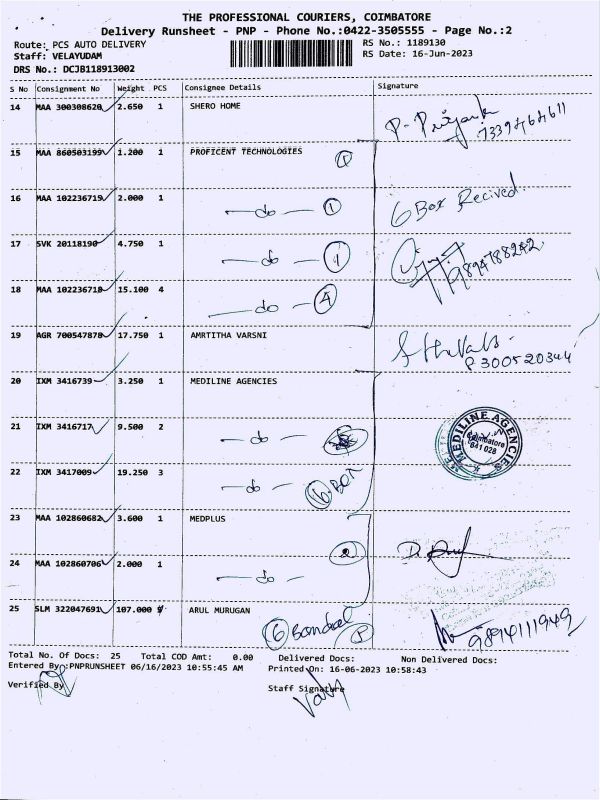 THE PROFESSIONAL COURIERS, COIMBATORE
Delivery Runsheet - PNP - Phone No.:0422-3505555 - Page No.:2
Route: PCS AUTO DELIVERY RS No.: 1189130
Staff: VELAYUDAM RS Date: 16-Jun-2023
DRS No.: DCJB118913002
S No Consignment No Weight PCS Consignee Details Signature
14 MAA 300308620 2.650 1 SHERO HOME
P. Priyanka
7339464611
15 MAA 860503199 1.200 1 PROFICENT TECHNOLOGIES 1
16 MAA 102236719 2.000 1 - do - 1 6 Box Recived
17 SVK 20118190 4.750 1 - do - 1
9894788242
18 MAA 102236718 15.100 4 - do - 4
19 AGR 700547878 17.750 1 AMRTITHA VARSNI
P300520344
20 IXM 3416739 3.250 1 MEDILINE AGENCIES
21 IXM 3416717 9.500 2 - do -
MEDILINE AGENCIES
Coimbatore
641 028
22 IXM 3417009 19.250 3 - do - 6 BOX
23 MAA 102860682 3.600 1 MEDPLUS
2
24 MAA 102860706 2.000 1 - do -
25 SLM 322047691 107.000 ARUL MURUGAN
6 Bandal P 9894111949
Total No. Of Docs: 25 Total COD Amt: 0.00 Delivered Docs: Non Delivered Docs:
Entered By :PNPRUNSHEET 06/16/2023 10:55:45 AM Printed On: 16-06-2023 10:58:43
Verified By Staff Signature